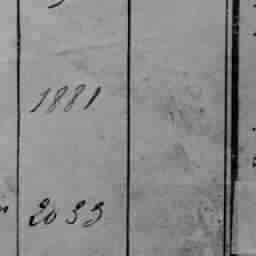 1881
2033